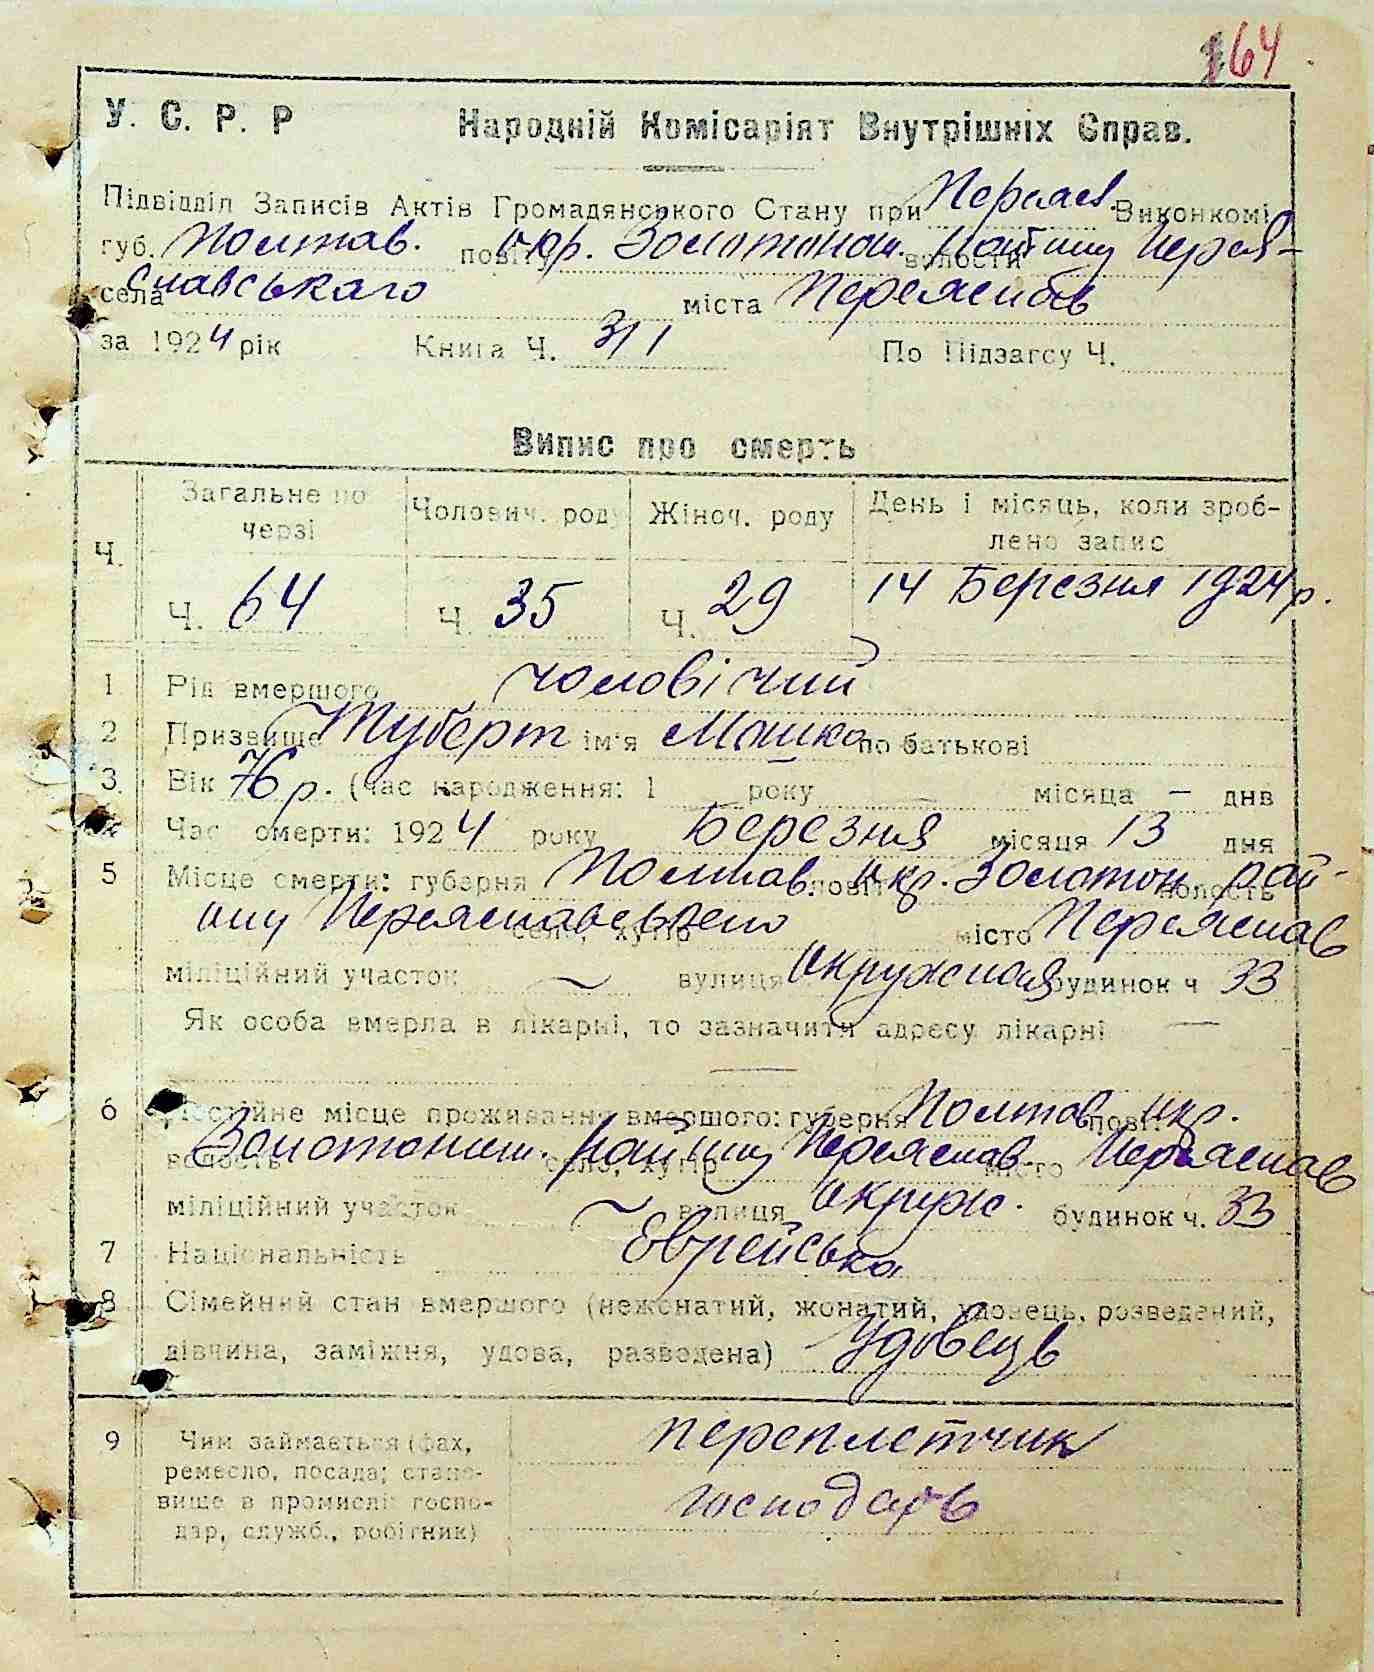 164
У. С. Р. Р Народній Комісаріят Внутрішніх Справ.
Підвідділ Записів Актів Громадянського Стану при Переяс. Виконкомі
губ. Полтав. повіту Окр. Золотонош. волости Району Перея-
села славськаго міста Переяслав
за 1924 рік Книга Ч. 3/1 По Підзагсу Ч.
Випис про смерть
Ч. Загальне по черзі Чоловіч. роду Жіноч. роду День і місяць, коли зроб-
лено запис
Ч. 64 Ч. 35 Ч. 29 14 Березня 1924 р.
1 Рід вмершого чоловічий
2 Призвище Туберт ім'я Мошко по батькові
3 Вік 76 р. (час народження: 1 року — місяца — днв
Час смерти: 1924 року Березня місяця 13 дня
5 Місце смерти: губерня Полтав. повіт Окр. Золотон. волость рай-
ону Переяславського село, хутір місто Переяслав
міліційний участок — вулиця Окружная будинок ч 33
Як особа вмерла в лікарні, то зазначити адресу лікарні —
—
6 Постійне місце проживання вмершого: губерня Полтав повіт Окр.
волость Золотонош. Району село, хутір Переяслав. місто Переяслав
міліційний участок — вулиця Окруж. будинок ч. 33
7 Національність Єврейська
8 Сімейний стан вмершого (нежонатий, жонатий, удовець, розведений,
дівчина, заміжня, удова, разведена) Удовець
9 Чим займається (фах, переплетчик
ремесло, посада; стано-
вище в промислі: госпо- господарь
дар, служб., робітник)